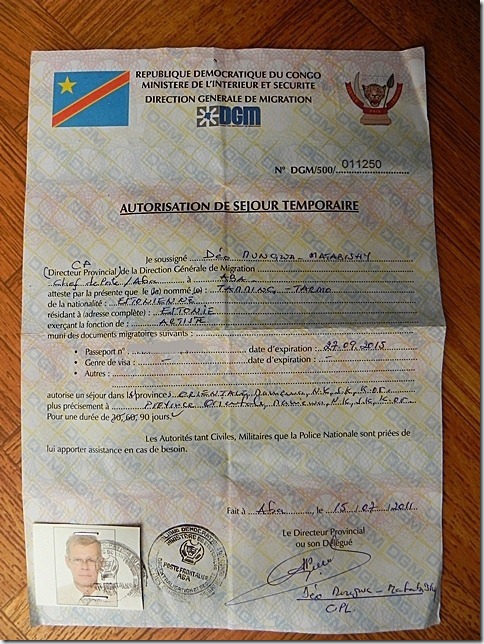 REPUBLIQUE DEMOCRATIQUE DU CONGO
MINISTERE DE L'INTERIEUR ET SECURITE
DIRECTION GENERALE DE MIGRATION
DGM
N° DGM/500/ 011250
AUTORISATION DE SEJOUR TEMPORAIRE
Je soussigné Déo RUNGWA - MATABISHY
CP
(Directeur Provincial) de la Direction Générale de Migration
Chef de Poste/Aba à ABA
atteste par la présente que le (a) nommé (e) : TAMMING - TARMO
de la nationalité : ESTONIENNE
résidant à (adresse complète) : ESTONIE
exerçant la fonction de : ARTISTE
muni des documents migratoires suivants :
• Passeport n° : date d'expiration : 27.09.2015
• Genre de visa : – date d'expiration : –
• Autres :
autorise un séjour dans la province : ORIENTALE, Maniema, N.K, S.K, K.Or.
plus précisément à Province Orientale, Maniema, N.K, S.K, K.Or.
Pour une durée de 30, 60, 90 jours
Les Autorités tant Civiles, Militaires que la Police Nationale sont priées de
lui apporter assistance en cas de besoin.
Fait à Aba, le 15/07/2011
Le Directeur Provincial
ou son Délégué
Déo Rungwa - Matabishy
CPL.
POSTE FRONTALIER
ABA